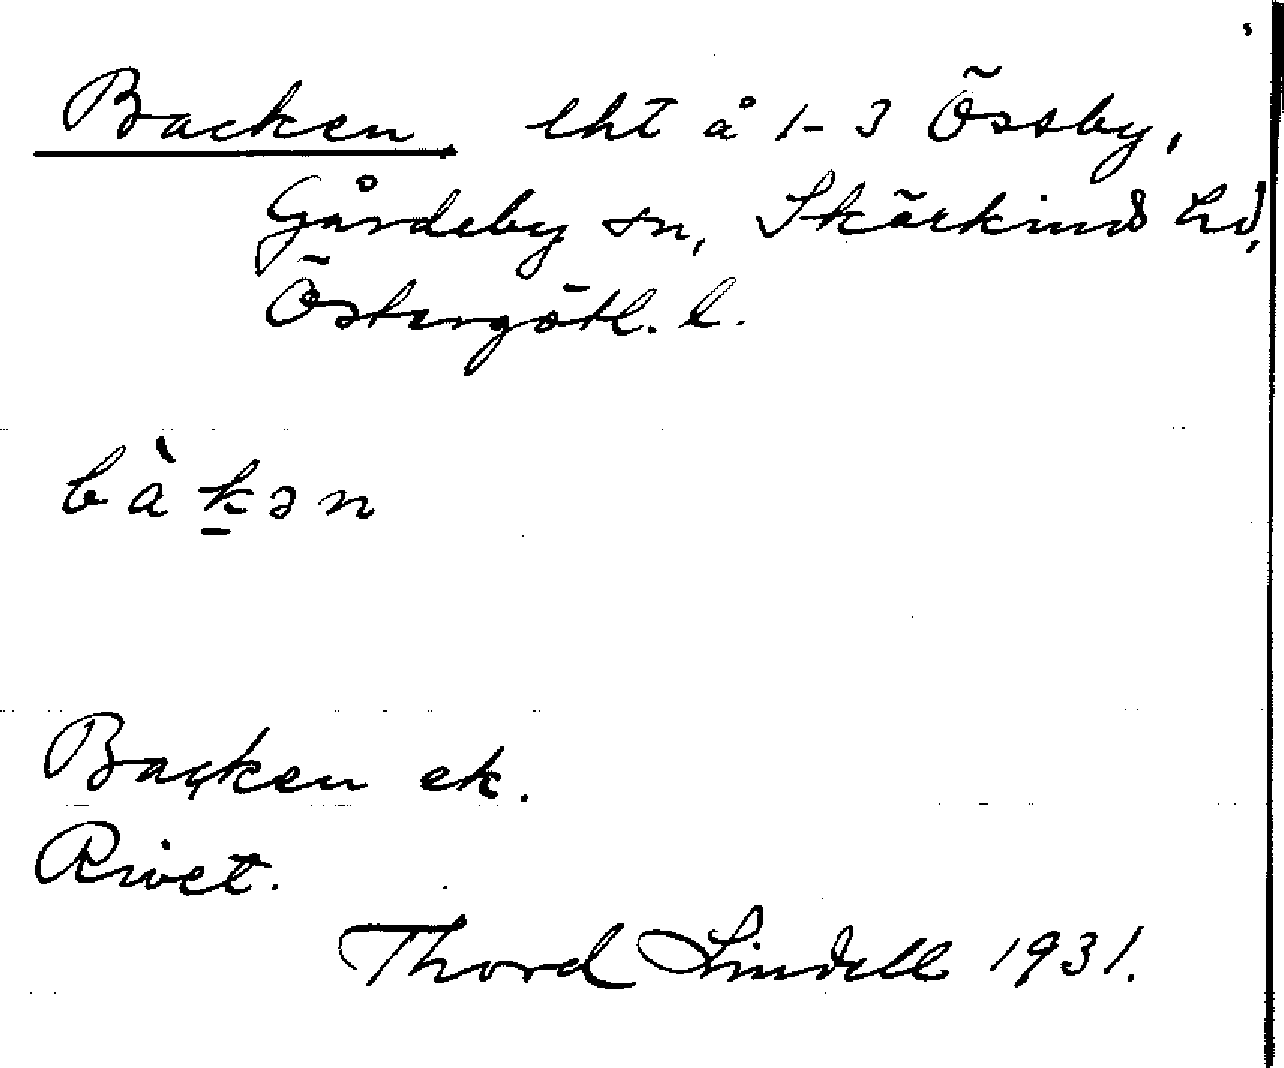 Backen, lht å 1-3 Össby,
Gårdeby sn, Skärkind hd,
Östergötl. l.
bàk̲ən
Backen ek.
Rivet.
Thord Lindell 1931.